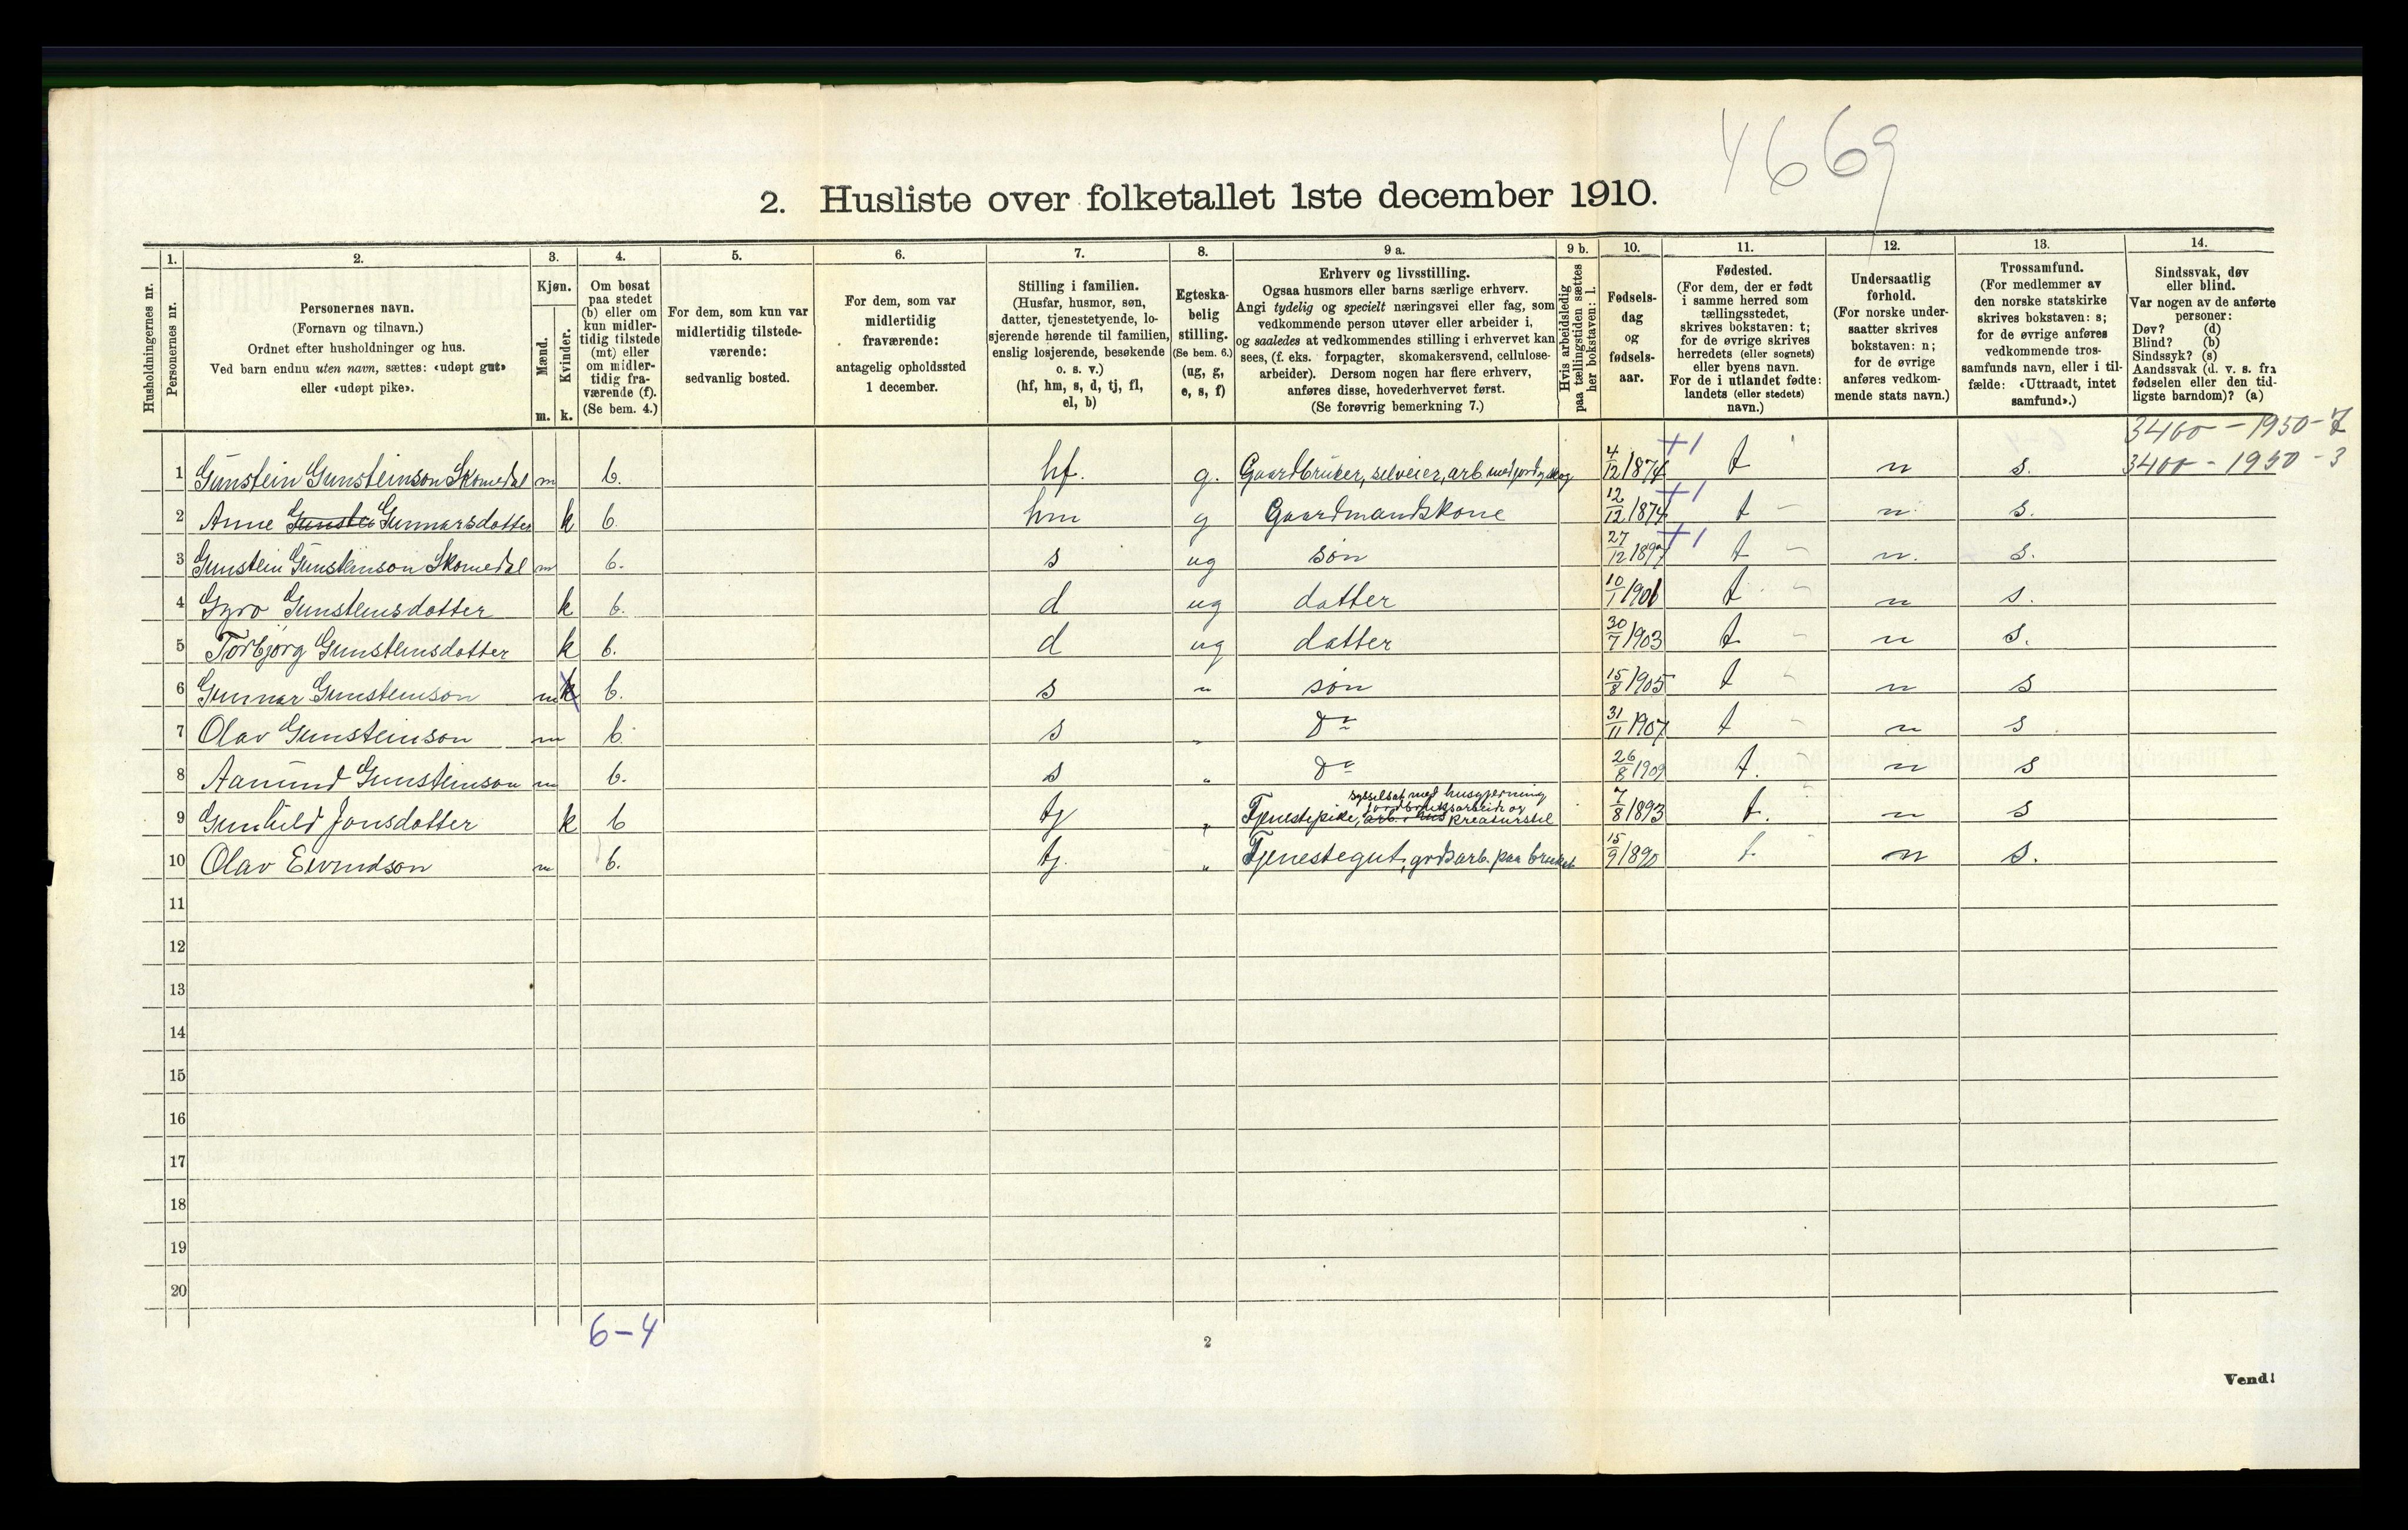 4669
2. Husliste over folketallet 1ste december 1910.
Husholdningernes nr.
1. Personernes nr.
2. Personernes navn. (Fornavn og tilnavn.) Ordnet efter husholdninger og hus. Ved barn endnu uten navn, sættes: «udøpt gut» eller «udøpt pike».
3. Kjøn. Mænd. m. Kvinder. k.
4. Om bosat paa stedet (b) eller om kun midler-tidig tilstede (mt) eller om midler-tidig fra-værende (f). (Se bem. 4.)
5. For dem, som kun var midlertidig tilstede-værende: sedvanlig bosted.
6. For dem, som var midlertidig fraværende: antagelig opholdssted 1 december.
7. Stilling i familien. (Husfar, husmor, søn, datter, tjenestetyende, lo-sjerende hørende til familien, enslig losjerende, besøkende o. s. v.) (hf, hm, s, d, tj, fl, el, b)
8. Egteska-belig stilling. (Se bem. 6.) (ug, g, e, s, f)
9 a. Erhverv og livsstilling. Ogsaa husmors eller barns særlige erhverv. Angi tydelig og specielt næringsvei eller fag, som vedkommende person utøver eller arbeider i, og saaledes at vedkommendes stilling i erhvervet kan sees, (f. eks. forpagter, skomakersvend, cellulose-arbeider). Dersom nogen har flere erhverv, anføres disse, hovederhvervet først. (Se forøvrig bemerkning 7.)
9 b. Hvis arbeidsledig paa tællingstiden sættes her bokstaven: l.
10. Fødsels-dag og fødsels-aar.
11. Fødested. (For dem, der er født i samme herred som tællingsstedet, skrives bokstaven: t; for de øvrige skrives herredets (eller sognets) eller byens navn. For de i utlandet fødte: landets (eller stedets) navn.)
12. Undersaatlig forhold. (For norske under-saatter skrives bokstaven: n; for de øvrige anføres vedkom-mende stats navn.)
13. Trossamfund. (For medlemmer av den norske statskirke skrives bokstaven: s; for de øvrige anføres vedkommende tros-samfunds navn, eller i til-fælde: «Uttraadt, intet samfund».)
14. Sindssvak, døv eller blind. Var nogen av de anførte personer: Døv? (d) Blind? (b) Sindssyk? (s) Aandssvak (d. v. s. fra fødselen eller den tid-ligste barndom)? (a)
3400 - 1950 - 7
1 Gunstein Gunsteinson Skomedal m b. hf. g. Gaardbruker, selveier, arb. med jord og skog 4/12 1874 +1 t n s. 3400 - 1950 - 3
2 Anne Gunnarsdotter k b. hm g Gaardmandskone 12/12 1874 +1 t n s.
3 Gunstein Gunsteinson Skomedal m b. s ug søn 27/12 1897 +1 t n. s.
4 Gyro Gunsteinsdotter k b. d ug datter 10/1 1901 t n s.
5 Torbjørg Gunsteinsdotter k b. d ug datter 30/7 1903 t n s.
6 Gunnar Gunsteinson m k b. s " søn 15/8 1905 t n s
7 Olav Gunsteinson m b. s " Do 31/11 1907 t n s
8 Aanund Gunsteinson m b. s " Do 26/8 1909 t. n s
sysselsat med husgjerning
9 Gunhild Jonsdotter k b tj " Tjenestepike, jordbruksarbeide og kreaturstel 7/8 1893 t. n s
10 Olav Eivindson m b. tj. " Tjenestegut, grdsarb. paa bruket 15/9 1890 t n s.
11
12
13
14
15
16
17
18
19
20
6-4
2
Vend!